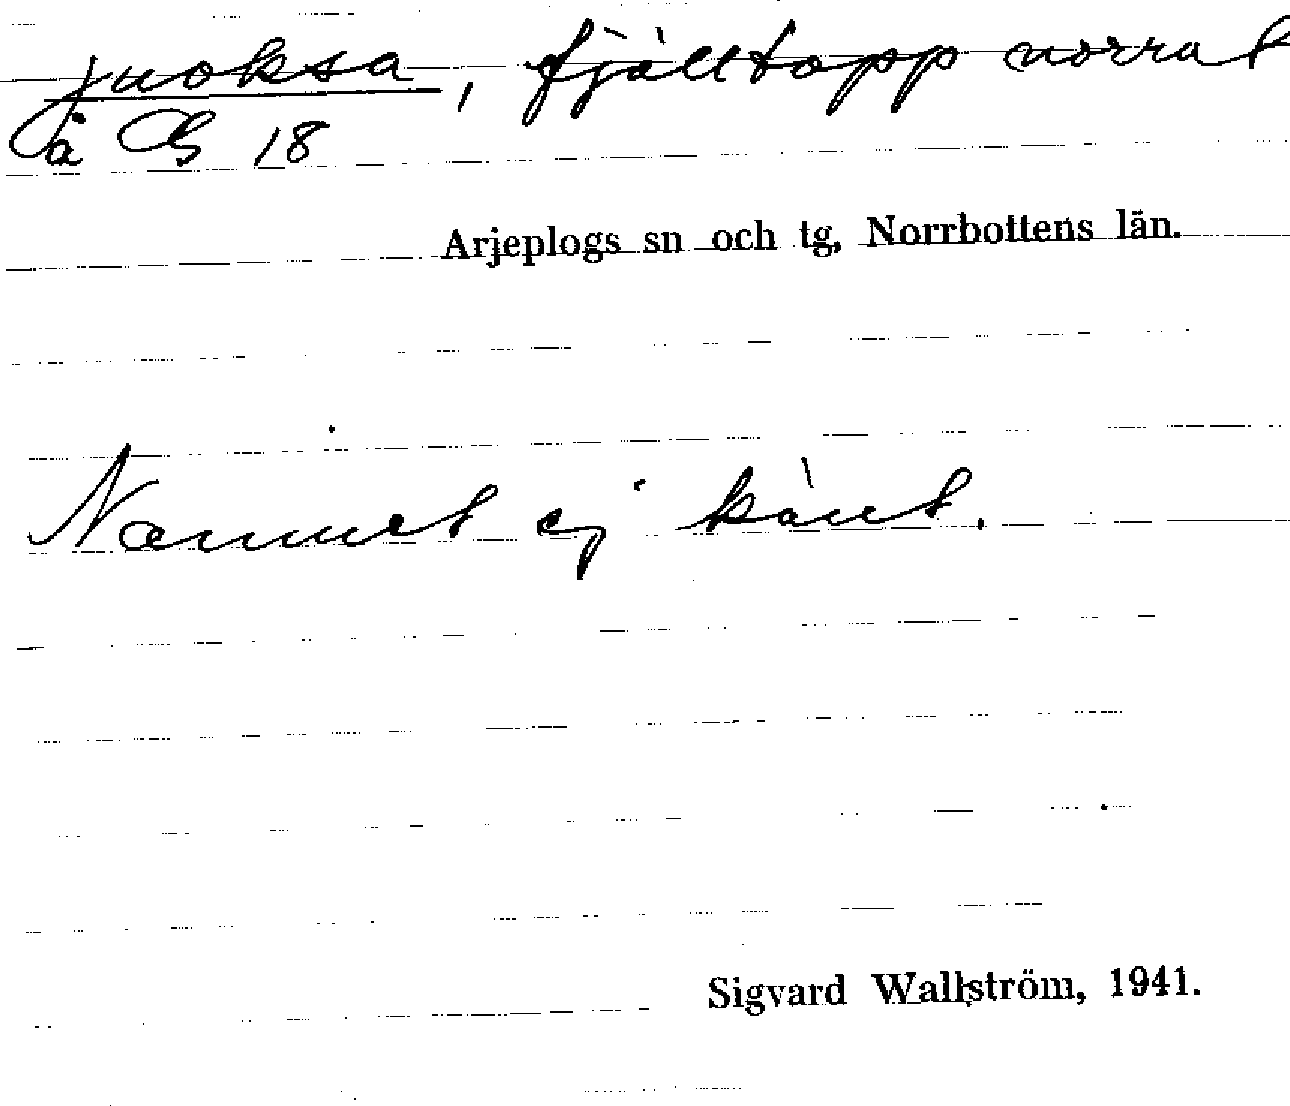 juoksa, fjälltopp norrat
å G 18
Arjeplogs sn och tg, Norrbottens län.
Namnet ej känt.
Sigvard Wallström, 1941.